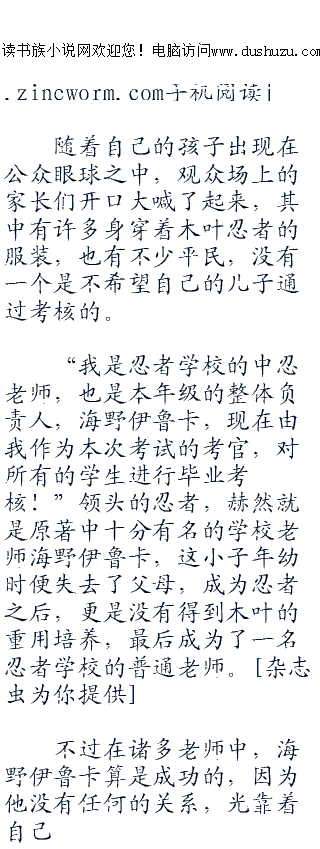 读书族小说网欢迎您！电脑访问www.dushuzu.com
.zincworm.com手机阅读i
随着自己的孩子出现在
公众眼球之中，观众场上的
家长们开口大喊了起来，其
中有许多身穿着木叶忍者的
服装，也有不少平民，没有
一个是不希望自己的儿子通
过考核的。
“我是忍者学校的中忍
老师，也是本年级的整体负
责人，海野伊鲁卡，现在由
我作为本次考试的考官，对
所有的学生进行毕业考
核！”领头的忍者，赫然就
是原著中十分有名的学校老
师海野伊鲁卡，这小子年幼
时便失去了父母，成为忍者
之后，更是没有得到木叶的
重用培养，最后成为了一名
忍者学校的普通老师。[杂志
虫为你提供]
不过在诸多老师中，海
野伊鲁卡算是成功的，因为
他没有任何的关系，光靠着
自己